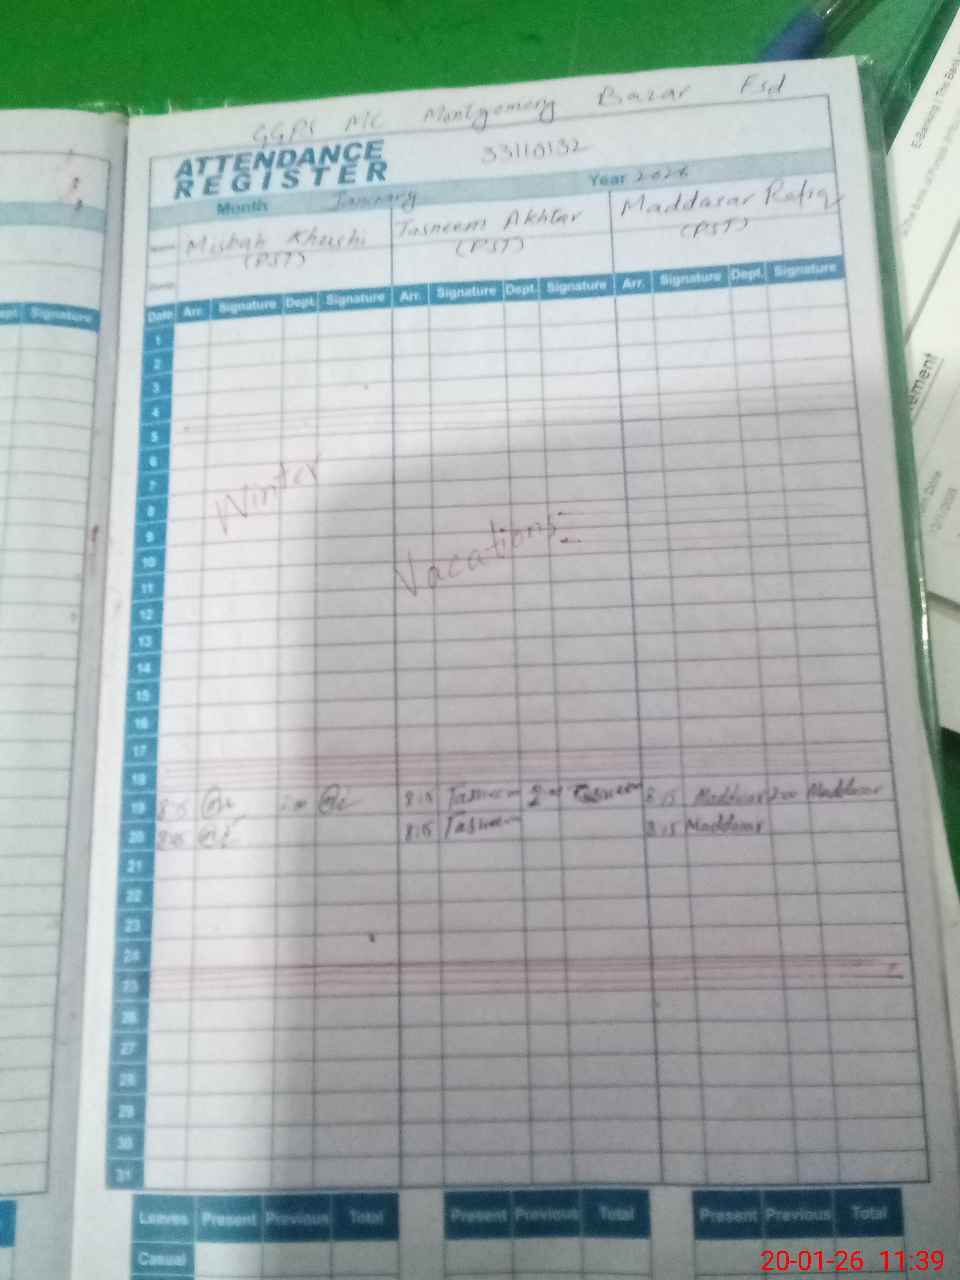 GGPS MC Montgomery Bazar Fsd
ATTENDANCE
REGISTER
33110132
Month January Year 2026
Misbah Khushi Tasneem Akhtar Maddasar Rafiq
(PST) (PST) (PST)
Date Arr. Signature Dept. Signature Arr. Signature Dept. Signature Arr. Signature Dept. Signature
Signature
1
2
3
4
5
6
7
Winter
8
9
Vacations
10
11
12
13
14
15
16
17
18
19 8:15 8:15 Tasneem Tasneem 8:15 Maddasar 2:00 Maddasar
20 8:15 8:15 Tasneem 8:15 Maddasar
21
22
23
24
25
26
27
28
29
30
31
Leaves Present Previous Total Present Previous Total Present Previous Total
Casual
E-Banking | The Bank
ement
20-01-26 11:39